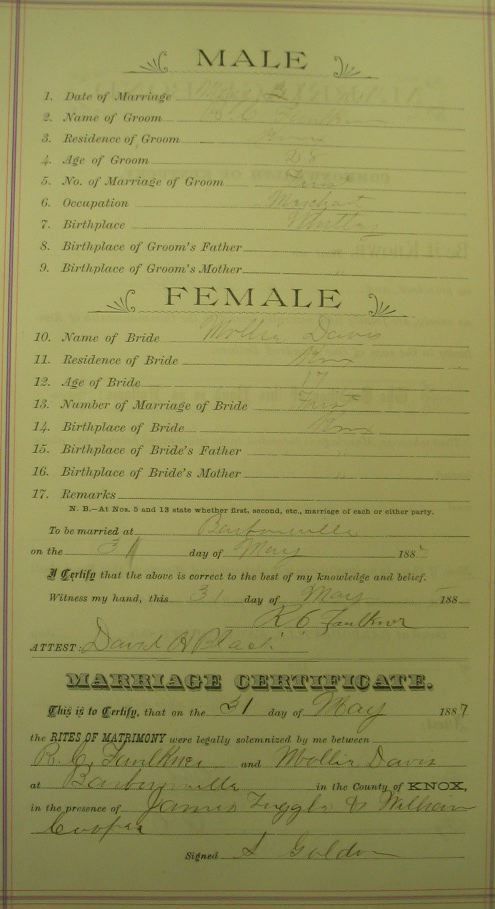 MALE
1. Date of Marriage May 31
2. Name of Groom R. C. Faulkner
3. Residence of Groom Knox
4. Age of Groom 28
5. No. of Marriage of Groom First
6. Occupation
7. Birthplace Whitley
8. Birthplace of Groom's Father
9. Birthplace of Groom's Mother "
FEMALE
10. Name of Bride Mollie Davis
11. Residence of Bride Knox
12. Age of Bride 17
13. Number of Marriage of Bride First
14. Birthplace of Bride Knox
15. Birthplace of Bride's Father "
16. Birthplace of Bride's Mother "
17. Remarks
N. B.—At Nos. 5 and 13 state whether first, second, etc., marriage of each or either party.
To be married at Barbourville
on the 31 day of May 188
I Certify that the above is correct to the best of my knowledge and belief.
Witness my hand, this 31 day of May 188
R. C. Faulkner
ATTEST: David H Black
MARRIAGE CERTIFICATE.
This is to Certify, that on the 31 day of May 1887
the RITES OF MATRIMONY were legally solemnized by me between
R. C. Faulkner and Mollie Davis
at Barbourville in the County of KNOX,
in the presence of James Tuggle & William
Cooper
Signed S Golden